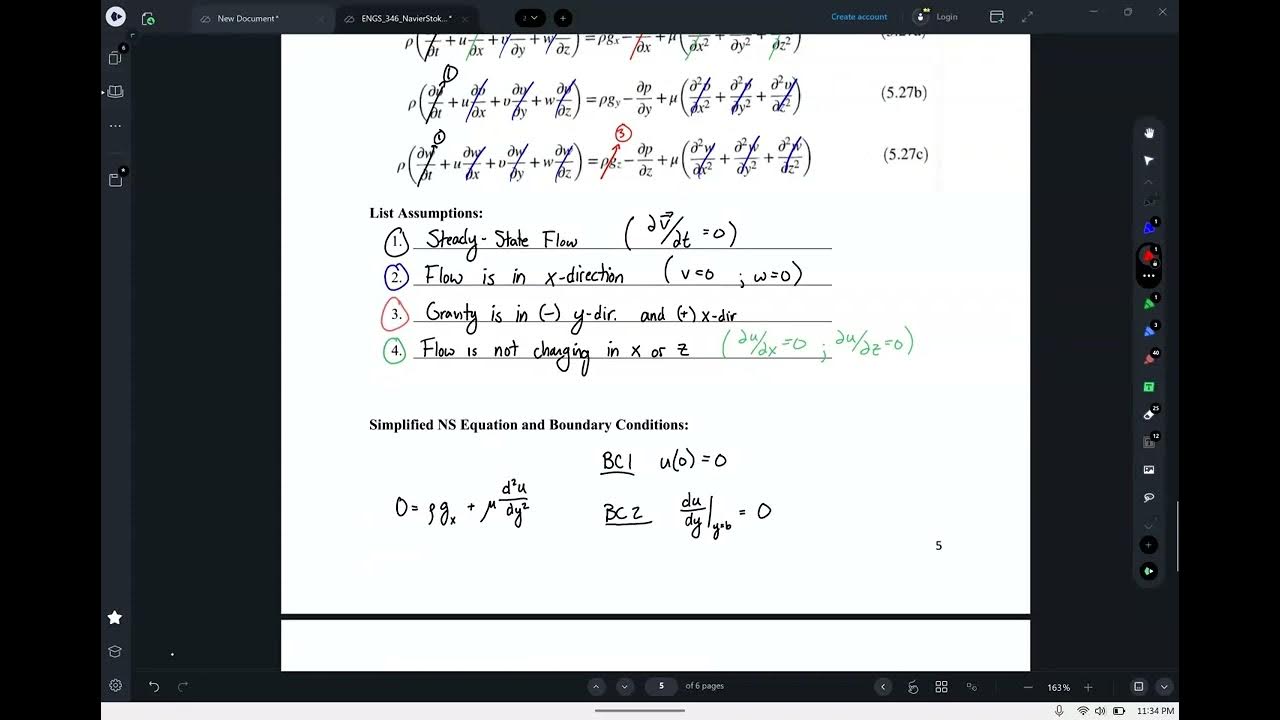 New Document*
ENGS_346_NavierStok...*
2
Create account
Login
ρ(∂v/∂t + u ∂v/∂x + υ ∂v/∂y + w ∂v/∂z) = ρg_y − ∂p/∂y + μ(∂²v/∂x² + ∂²v/∂y² + ∂²v/∂z²) (5.27b)
①
ρ(∂w/∂t + u ∂w/∂x + υ ∂w/∂y + w ∂w/∂z) = ρg_z − ∂p/∂z + μ(∂²w/∂x² + ∂²w/∂y² + ∂²w/∂z²) (5.27c)
① ③
List Assumptions:
1. Steady-State Flow (∂V⃗/∂t = 0)
2. Flow is in x-direction (v=0 ; w=0)
3. Gravity is in (-) y-dir. and (+) x-dir
4. Flow is not changing in x or z (∂u/∂x = 0 ; ∂u/∂z = 0)
Simplified NS Equation and Boundary Conditions:
BC1 u(0) = 0
0 = ρg_x + μ d²u/dy²
BC2 du/dy|_y=b = 0
5
5 of 6 pages
163%
11:34 PM